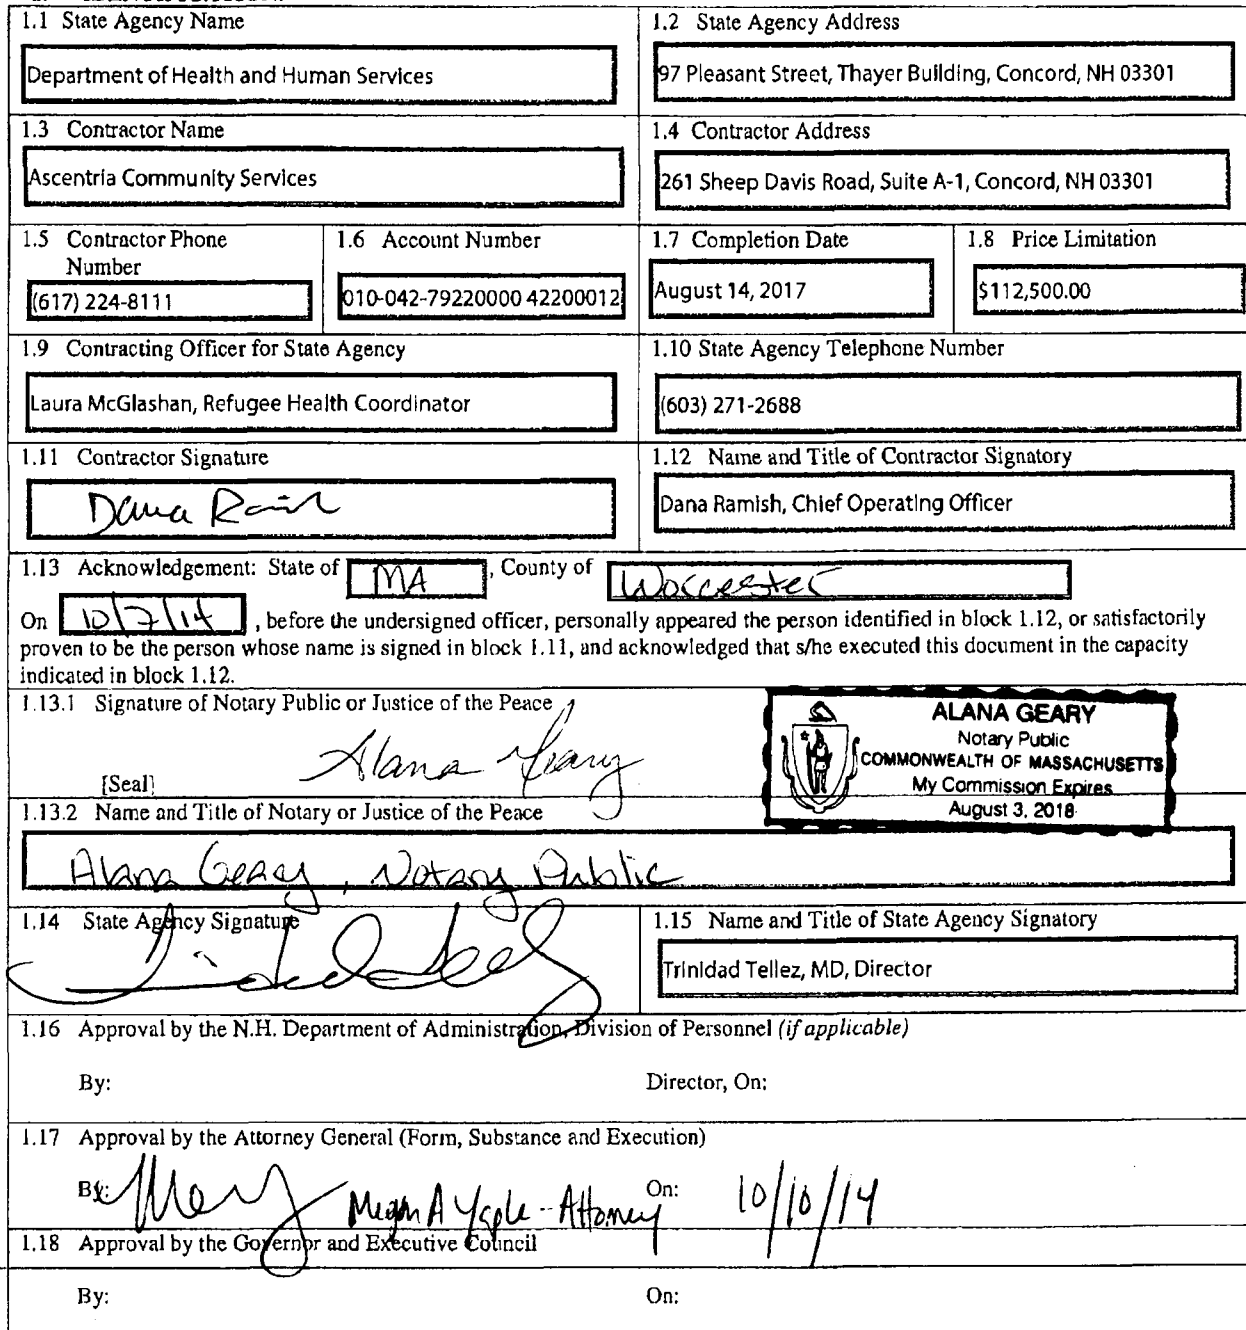 1.1 State Agency Name
1.2 State Agency Address
Department of Health and Human Services
97 Pleasant Street, Thayer Building, Concord, NH 03301
1.3 Contractor Name
1.4 Contractor Address
Ascentria Community Services
261 Sheep Davis Road, Suite A-1, Concord, NH 03301
1.5 Contractor Phone
Number
1.6 Account Number
1.7 Completion Date
1.8 Price Limitation
(617) 224-8111
010-042-79220000 42200012
August 14, 2017
$112,500.00
1.9 Contracting Officer for State Agency
1.10 State Agency Telephone Number
Laura McGlashan, Refugee Health Coordinator
(603) 271-2688
1.11 Contractor Signature
1.12 Name and Title of Contractor Signatory
Dana
Dana Ramish, Chief Operating Officer
1.13 Acknowledgement: State of MA, County of Worcester
On 10/7/14, before the undersigned officer, personally appeared the person identified in block 1.12, or satisfactorily
proven to be the person whose name is signed in block 1.11, and acknowledged that s/he executed this document in the capacity
indicated in block 1.12.
1.13.1 Signature of Notary Public or Justice of the Peace
Alana Geary
[Seal]
ALANA GEARY
Notary Public
COMMONWEALTH OF MASSACHUSETTS
My Commission Expires
August 3, 2018
1.13.2 Name and Title of Notary or Justice of the Peace
Alana Geary, Notary Public
1.14 State Agency Signature
1.15 Name and Title of State Agency Signatory
Trinidad Tellez, MD, Director
1.16 Approval by the N.H. Department of Administration, Division of Personnel (if applicable)
By:
Director, On:
1.17 Approval by the Attorney General (Form, Substance and Execution)
By: Megan A - Attorney On: 10/10/14
1.18 Approval by the Governor and Executive Council
By:
On: